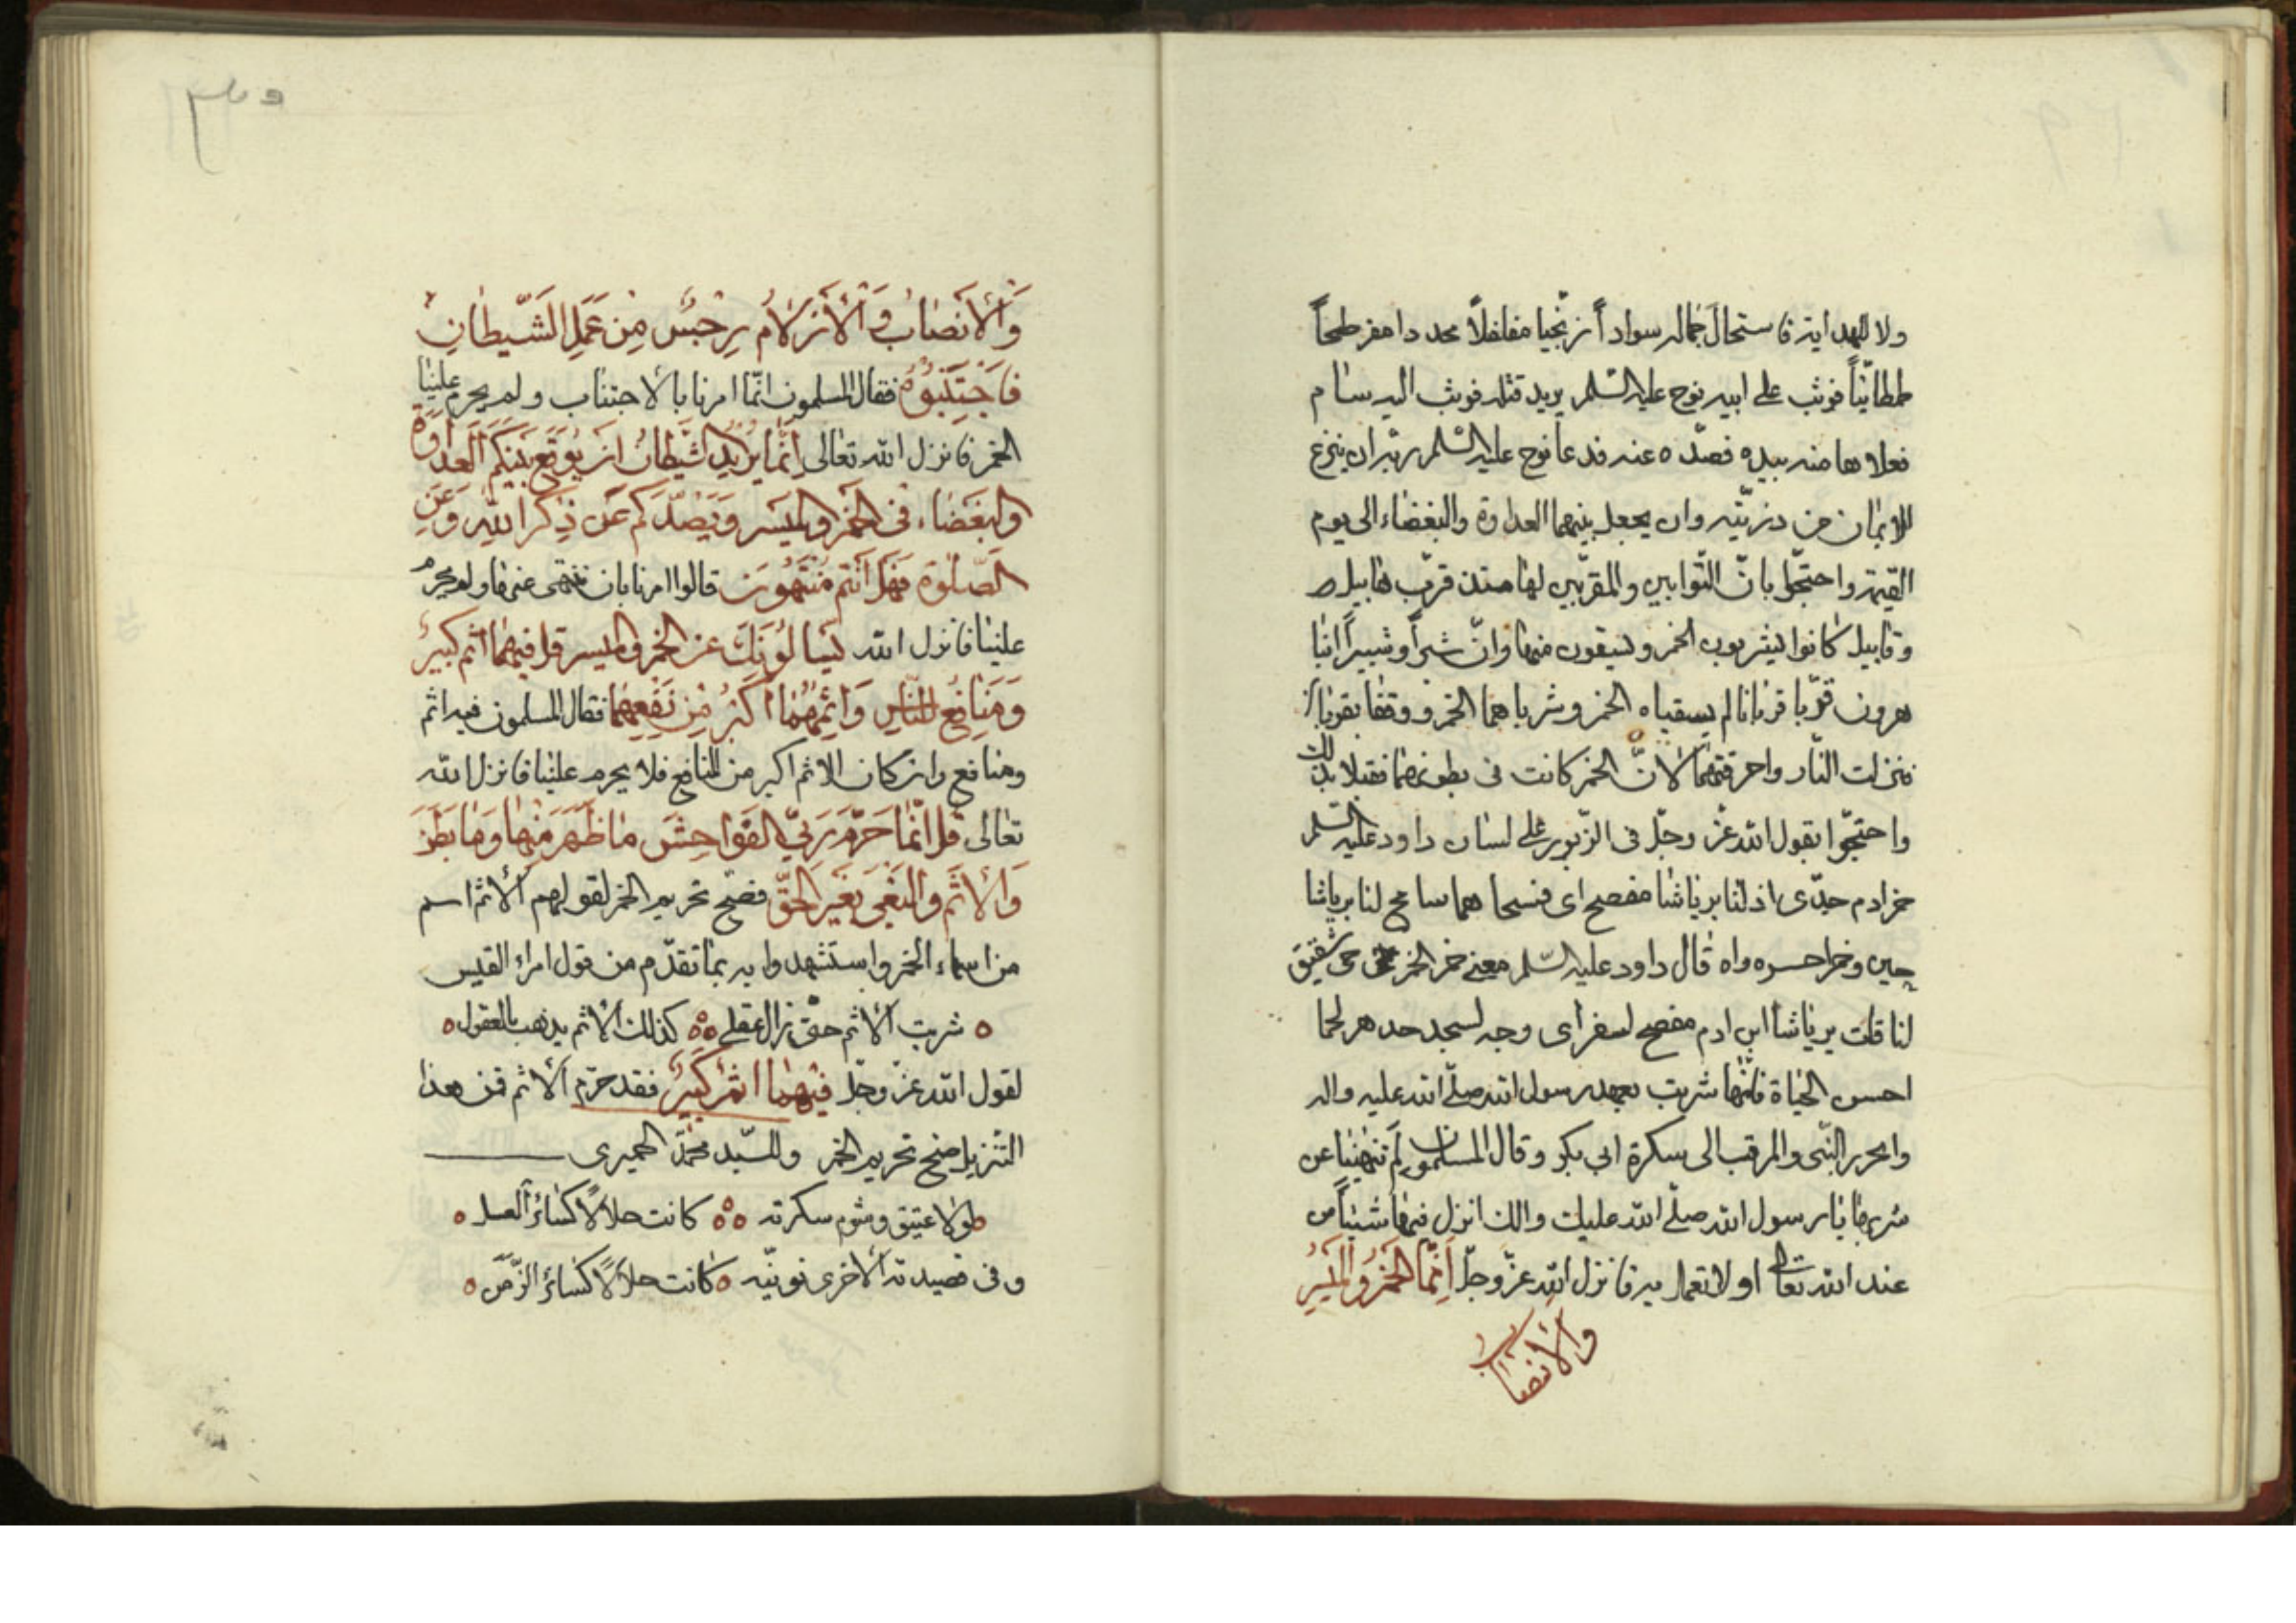 ولا لهدايته فاستحال جماله سواداً زنجيا مفلفلاً محددا مفرطحاً
طمطانيّاً فوثب على ابيه نوح عليه السّلم يريد قتله فوثب اليه سام
فعلاهما منه بيده فصدّه عنه فدعا نوح عليه السّلم ربّه ان ينزع
الايمان من ذريّته وان يجعل بينهما العداوة والبغضاء الى يوم
القيمة واحتجّوا بانّ التّوابين والمقرّبين لها منذ قرّب هابيل
وقابيل كانوا يشربون الخمر ويسقون منها وانّ شبراً وشبيراً ابنا
هرون قرّبا قربانا لم يسقياه الخمر وشرباهما الخمر ووقفا يقربا
فنزلت النّار واحرقتهما لانّ الخمر كانت فى بطونهما فقبلا بذلك
واحتجّوا بقول الله عزّ وجلّ فى الزّبور على لسان داود عليه السلم
خرادم حدّى اذ لنا برياشا مفصح اى فنسحا هما سامح لنا برياشا
حين وخمرا حسره واه قال داود عليه السّلم معنى خمر الخمر حى شقيق
لنا قلت برياشا ابن ادم مفصح لسفراى وجه لسجد حد هر لحما
احسن الحياة فانّها شربت بعهد رسول الله صلّى الله عليه واله
وامحرير النّبى والمرقب الى سكرة ابى بكر وقال المسلمون لم تنهنا عن
شربها يا رسول الله صلّى الله عليك والك انزل فيها شيئاً من
عند الله تعالى او لا تعمل به فانزل الله عزّ وجلّ اِنّما الخَمرُ والمَيسِرُ
والانصاب
وَالاَنصَابُ وَالاَزلاَمُ رِجسٌ مِن عَمَلِ الشَّيطانِ
فَاجتَنِبُوهُ فقال المسلمون انّما امرنا بالاجتناب ولم يحرم علينا
الخمر فانزل الله تعالى اِنَّما يُرِيدُ الشَّيطَانُ ان يُوقِعَ بَينَكُم العَداوَةَ
والبَغضَاء فى الخَمرِ والمَيسر وَيَصُدَّكُم عَن ذِكرِ اللهِ وَعَنِ
الصَّلوةِ فَهَل اَنتُم مُنتَهُونَ قالوا امرنا بان ننتهى عنها ولم يحرم
علينا فانزل الله يَسالُونَكَ عن الخمر والميسر قل فيهما اثم كبيرٌ
وَمَنافِعُ للنّاسِ وَاِثمُهُمَا اَكبَرُ مِن نَفعِهِمَا فقال المسلمون فيه اثم
ومنافع وان كان الاثم اكبر من المنافع فلا يحرم علينا فانزل الله
تعالى قل انَّما حَرَّمَ رَبِّىَ الفَوَاحِشَ ما ظَهَرَ مِنها وَما بَطَنَ
وَالاِثمَ والبَغىَ بِغَيرِ الحَقّ فصّح تحريم الخمر لقولهم الاثم اسم
من اسماء الخمر واستشهدوا به بما تقدّم من قول امراء القيس
شربت الاثم حتّى زال عقلى كذلك الاثم يذهب بالعقول
لقول الله عزّ وجلّ فيهما اثمٌ كَبِيرٌ فقد حرّم الاثم فمن هذا
التنزيل صحّ تحريم الخمر وللسّيد محمّد الحميرى
لولا عتيق وشوم سكرته كانت حلالاً كسائر العسل
وفى قصيدته الاخرى نونيّه كانت حلالاً كسائر الزّمن